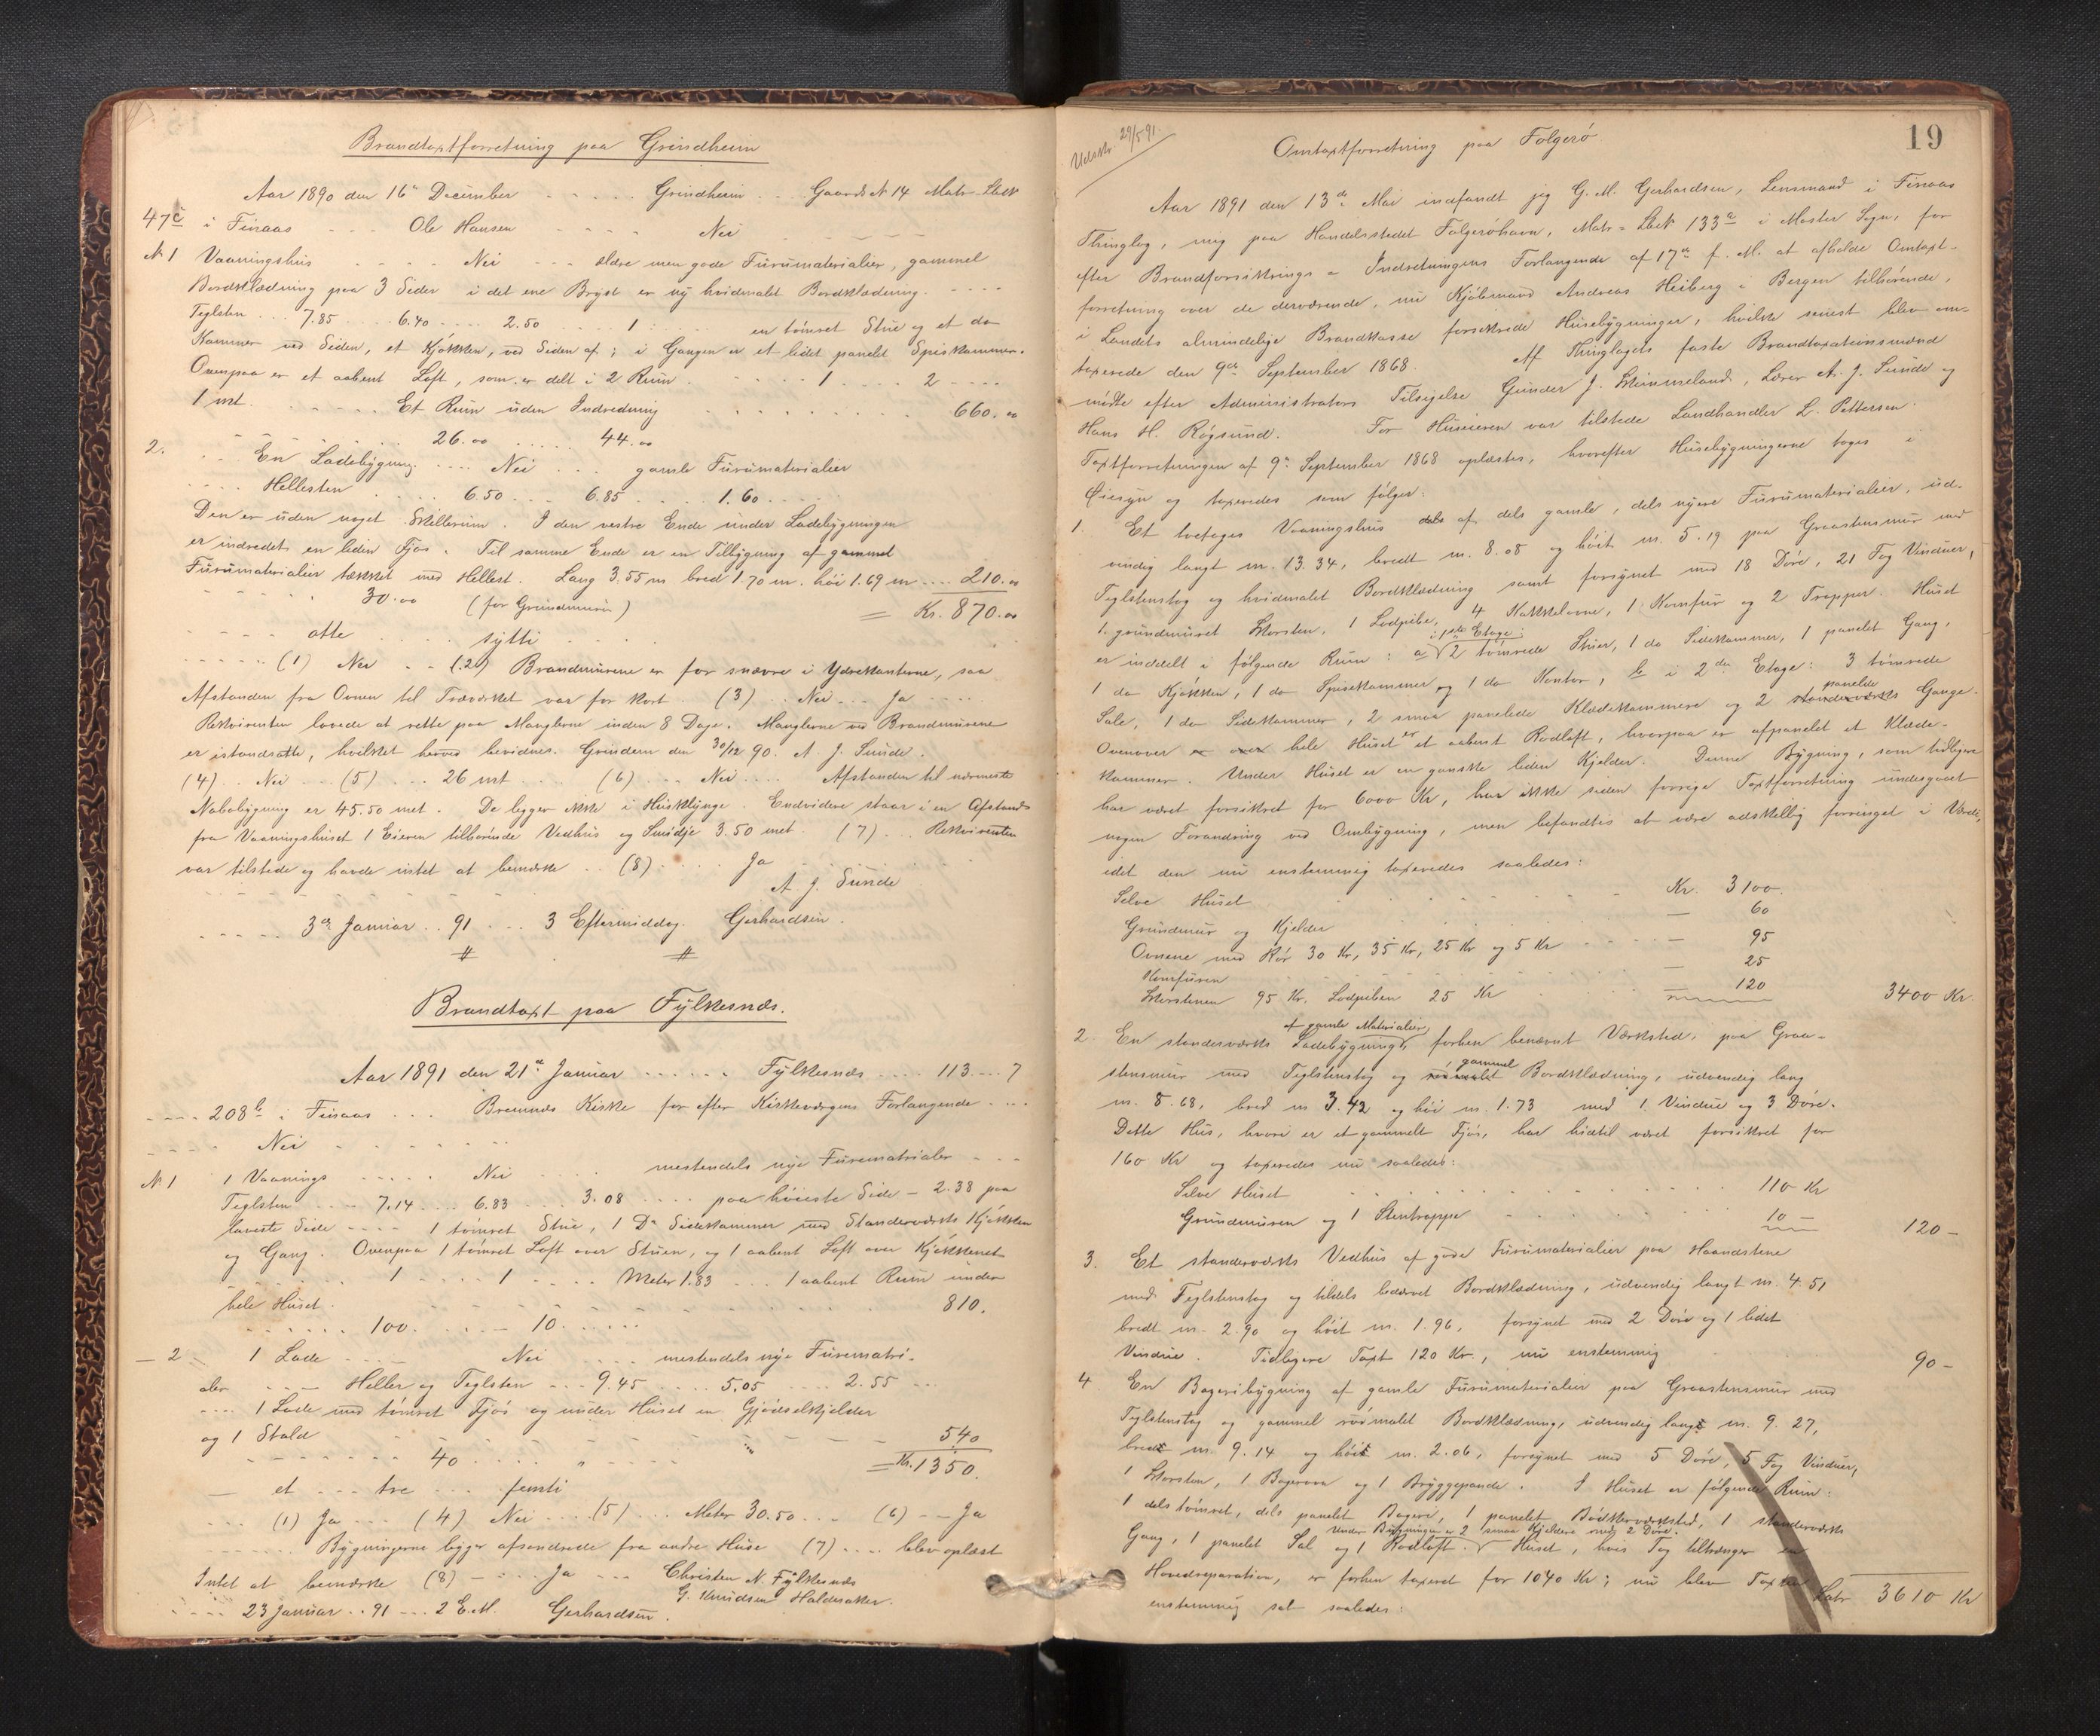 Brandtaxtforretning paa Grindheim
Aar 1890 den 16de December - - - - - Grindheim - - - Gaards N 14 Matr. Løbe N
47c i Finaas - - - Ole Hansen - - - - Nei
N 1 Vaaningshus - - - - - Nei - - - ældre men gode Furumaterialier, gammel
Bordklædning paa 3 Sider i det ene Bryst er ny hvidmalet Bordklædning. - - - -
Teglsten - - - 7.85 - - - - 6.40 - - - - 2.50 - - - - 1 - - - - en tømret Stue og et do
Kammer ved Siden, et Kjøkken, ved Siden af; i Gangen er et lidet panelet Spiskammer.
Ovenpaa er et aabent Loft, som er delt i 2 Rum. - - - - - 1 - - - - 2 - - - -
1 mt. - - - - - Et Rum uden Indredning - - - - - - - - 660.00
- - - - - 26.00 - - - - 44.00
2. - - En Ladebygning - - - - Nei - - - gamle Furumaterialier
- - - - Hellesten - - - - 6.50 - - - 6.85 - - - - 1.60 - - - -
Den er uden noget Skillerum. I den vestre Ende under Ladebygningen
er indredet en liden Fjøs. Til samme Ende er en Tilbygning af gammel
Furumaterialier tækket med Hellest. Lang 3.55 m bred 1.70 m. høi 1.69 m - - - - 210.00
- - - - - 30.00 (for Grundmuren) = Kr. 870.00
- - - - - otte - - - - sytti - - - - -
- - - - - (1) Nei - - (2) Brandmurene er for snævre i Ydrekanterne, saa
Afstanden fra Ovnen til Træværket var for kort. (3) - Nei - - Ja - - - -
Rekvirenten lovede at rette paa Manglerne inden 8 Dage. Manglerne ved Brandmurene
er istandsatte, hvilket herved bevidnes. Grindem den 30/12 90. A. J. Sunde.
(4) - - Nei - - - (5) - - - - 26 mt - - - (6) - - - Nei - - - - Afstanden til nærmeste
Nabobygning er 45.50 met. De ligger ikke i Husklynge. Endvidere staar i en Afstand
fra Vaaningshuset 1 Eieren tilhørende Vedhus og Smidje 3.50 met. (7) - - Rekvirenten
var tilstede og havde intet at bemærke - - (8) - - - - Ja
A. J. Sunde
- - - - - 3de Januar - - 91 - - - 3 Eftermiddag. Gerhardsen.
# #
Brandtaxt paa Fylkesnæs.
Aar 1891 den 21de Januar - - - - - - Fylkesnæs - - - - 113 - - - 7
- - - - 208b i Finaas - - - Bremnæs Kirke for efter Kirkeværgens Forlangende - - -
- - - - Nei - - - - - -
N 1 1 Vaanings - - - - - Nei - - - - mestendels nye Furematrialer - - -
Teglsten - - - - 7.14 - - - - 6.83 - - - 3.08 - - - - paa høieste Side - 2.38 paa
laveste Side - - - - 1 tømret Stue, 1 Do Sidekammer med Standerværks Kjøkken
og Gang. Ovenpaa 1 tømret Loft over Stuen, og 1 aabent Loft over Kjøkkenet
- - - - - - 1 - - - - 1 - - - - Meter 1.83 - - - 1 aabent Rum under
hele Huset. - - - - - - - - - - 810.
- - - - - - 100. - - - - 10. - - - - -
- 2 1 Lade - - - - Nei - - - - mestendels nye Furematri-
aler - - - Heller og Teglsten - - - 9.45 - - - - 5.05 - - - - 2.55 - - -
- - - - 1 Lade med tømret Fjøs og under Huset en Gjødselkjelder
og 1 Stald - - - - - - - - - - 540
- - - - - - - 40 - - - - - = Kr. 1350.
- et - - - tre - - - femti
- - - (1) Ja - - - (4) Nei - - - (5) - - - Meter 30.50 - - - (6) - - Ja
- - - - - - - Bygningerne ligger afsondrede fra andre Huse (7) - - - - blev oplæst
Intet at bemærke (8) - - - - Ja - - - Christen N. Fylkesnæs
G. Knudsen Haldesakker.
- - - - - 23 Januar - - 91 - - - 2 E.M. Gerhardsen.
Udskr. 29/5 91.
19
Omtaxtforretning paa Folgerø
Aar 1891 den 13de Mai indfandt jeg G. M. Gerhardsen, Lensmand i Finaas
Thinglag, mig paa Handelsstedet Folgerøhavn, Matr.-Løbe N 133a i Moster Sogn, for
efter Brandforsikrings-Indretningens Forlangende af 17de f. M. at afholde Omtaxt-
forretning over de derværende, nu Kjøbmand Andreas Heiberg i Bergen tilhørende,
i Landets almindelige Brandkasse forsikrede Husebygninger, hvilke senest blev om-
taxerede den 9de September 1868. Af Thinglagets faste Brandtaxationsmænd
mødte efter Administrators Tilsigelse Gunder J. Skimmeland, Lærer A. J. Sunde og
Hans H. Røgsund. For Huseieren var tilstede Landhandler L. Pettersen.
Taxtforretningen af 9de September 1868 oplæstes, hvorefter Husebygningerne toges i
Øiesyn og taxeredes som følger:
1. Et toetages Vaaningshus dels af dels gamle, dels nyere Furumaterialier, ud-
vendig langt m. 13.34, bredt m. 8.08 og høit m. 5.19 paa Graastensmur med
Teglstenstag og hvidmalet Bordklædning samt forsynet med 18 Døre, 21 Fag Vinduer,
1. grundmuret Skorsten, 1 Lodpibe, 4 Kakkelovne, 1 Komfur og 2 Trapper. Huset
er inddelt i følgende Rum: a i 1ste Etage: 2 tømrede Stuer, 1 do Sidekammer, 1 panelet Gang,
1 do Kjøkken, 1 do Spisekammer og 1 do Kontor, b i 2den Etage: 3 tømrede
Sale, 1 do Sidekammer, 2 smaa panelede Klædekammere og 2 standerværks panelde Gange.
Ovenover er over hele Huset er et aabent Rodloft, hvorpaa er afpanelet et Klæde-
kammer. Under Huset er en ganske liden Kjelder. Denne Bygning, som tidligere
har været forsikret for 6000 Kr, har ikke siden forrige Taxtforretning undergaaet
nogen Forandring ved Ombygning, men befandtes at være adskillig forringet i Værdi,
idet den nu enstemmig taxeredes saaledes:
Selve Huset - - - - - - Kr. 3100.
Grundmur og Kjelder - - - - - - 60
Ovnene med Rør 30 Kr, 35 Kr, 25 Kr og 5 Kr - - - - - 95
Komfuren - - - - - - 25
Skorstenen 95 Kr. Lodpiben 25 Kr - - - - - 120 3400 Kr.
2. En standerværks Ladebygning af gamle Materialier, forhen benævnt Værksted, paa Graa-
stensmur med Teglstenstag og rødmalet gammel Bordklædning, udvendig lang
m. 8.68, bred m 3.42 og høi m. 1.73 med 1 Vindue og 3 Døre.
Dette Hus, hvori er et gammelt Fjøs, har hidtil været forsikret for
160 Kr og taxeredes nu saaledes:
Selve Huset - - - - - - 110 Kr
Grundmuren og 1 Stentrappe - - - - - 10 - 120 -
3. Et standerværks Vedhus af gode Furumaterialier paa Haandstene
med Teglstenstag og tildels bedærvet Bordklædning, udvendig langt m. 4.51
bredt m. 2.90 og høit m. 1.96, forsynet med 2 Døre og 1 lidet
Vindue. Tidligere Taxt 120 Kr., nu enstemmig - - - 90 -
4 En Bageribygning af gamle Furumaterialier paa Graastensmur med
Teglstenstag og gammel rødmalet Bordklædning, udvendig lang m. 9.27,
bred m. 9.14 og høi m. 2.06, forsynet med 5 Døre, 5 Fag Vinduer,
1 Skorsten, 1 Bagerovn og 1 Bryggepande. I Huset er følgende Rum:
1 dels tømret, dels panelet Bageri, 1 panelet Bødkerværksted, 1 standerværks
Gang, 1 panelet Sal og 1 Rodloft. Under Bygningen er 2 smaa Kjeldere med 2 Døre. Huset, hvis Tag tiltrænger en
Hovedreparation, er forhen taxeret for 1040 Kr; nu blev Taxten
enstemmig sat saaledes: Latr. 3610 Kr